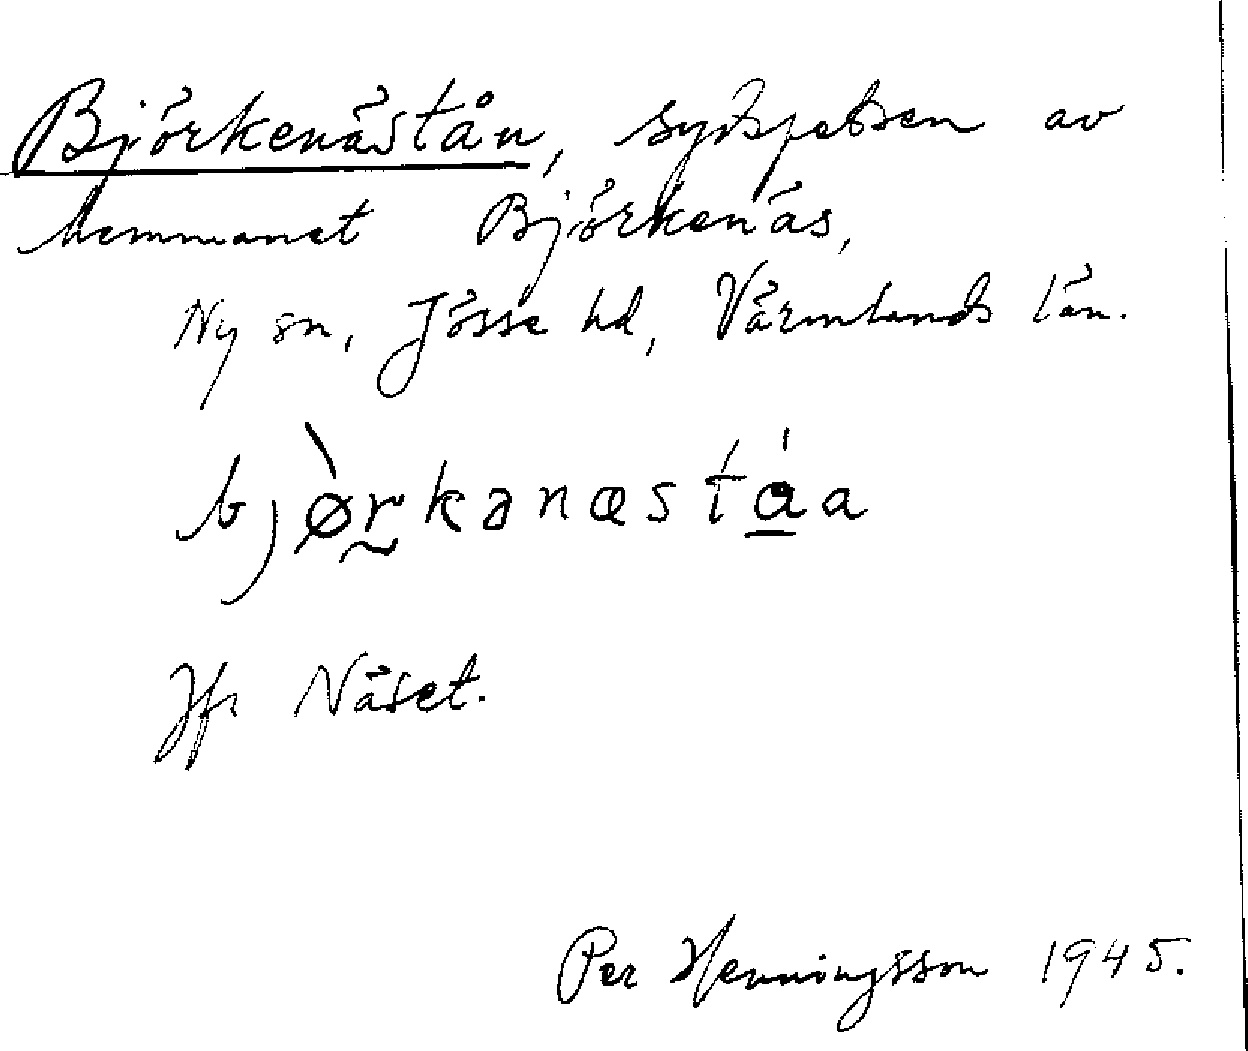 Björkenästån, sydspetsen av
hemmanet Björkenäs,
Ny sn, Jösse hd, Värmlands län.
bjø̀r̰kənæstá̱a
Jfr Näset.
Per Henningsson 1945.